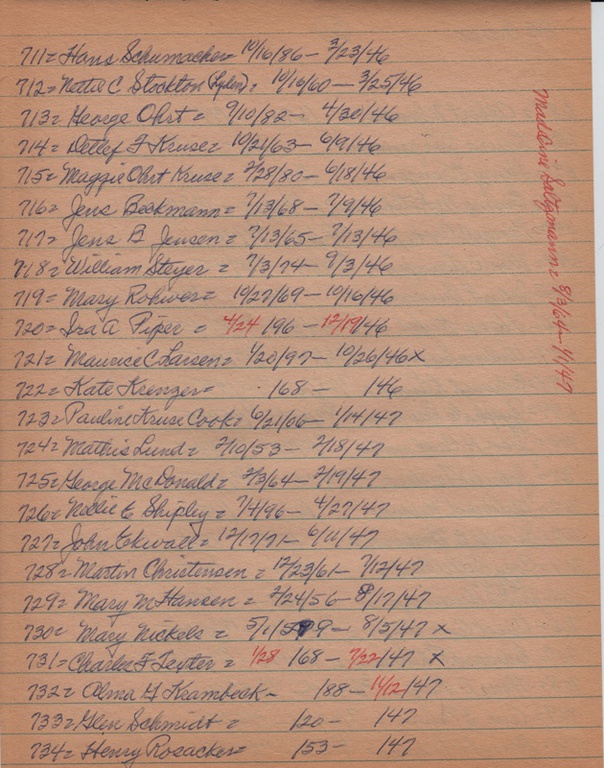 711= Hans Schumacher= 10/16/86 - 3/23/46
712= Nettie C Stockton (Lyden)= 10/16/60 - 3/25/46
713= George Ohrt = 9/10/82 - 4/30/46
714= Detlef F Kruse= 10/21/63 - 6/9/46
715= Maggie Ohrt Kruse= 2/28/80 - 6/18/46
716= Jens Beckmann= 7/13/68 - 7/9/46
717= Jens B Jensen = 7/13/65 - 7/13/46
718= William Steyer = 7/3/74 - 9/3/46
719= Mary Rohwer= 10/27/69 - 10/16/46
720= Ira A Piper = 4/24 /96 - 12/19/46
721= Maurice C Larsen= 1/20/97 - 10/26/46 x
722= Kate Krenzer= /68 - /46
723= Pauline Kruse Cook= 6/21/06 - 1/14/47
724= Mathis Lund= 2/10/53 - 2/18/47
725= George McDonald= 2/3/64 - 2/19/47
726= Nellie E Shipley= 7/4/96 - 4/27/47
727= John Ekwall= 12/17/71 - 6/11/47
728= Martin Christensen = 12/23/61 - 7/12/47
729= Mary M Hansen = 2/24/56 - 8/17/47
730= Mary Nickels = 5/1/59 - 8/5/47 x
731= Charles F Teyter = 1/28 /68 - 7/22/47 x
732= Alma G Krambeck - /88 - 11/12/47
733= Glen Schmidt = /20 - /47
734= Henry Rosacker= /53 - /47
Saltzmann= 8/3/64 - 1/1/47